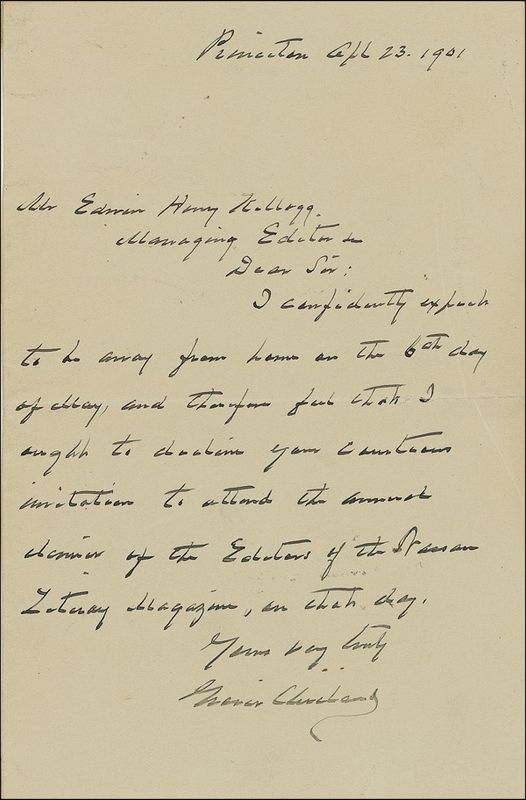 Princeton Apl 23. 1901
Mr Edwin Henry Kellogg.
Managing Editor &c
Dear Sir:
I confidently expect
to be away from home on the 6th day
of May, and therefore feel that I
ought to decline your courteous
invitation to attend the annual
dinner of the Editors of the Nassau
Literary Magazine, on that day.
Yours very truly
Grover Cleveland